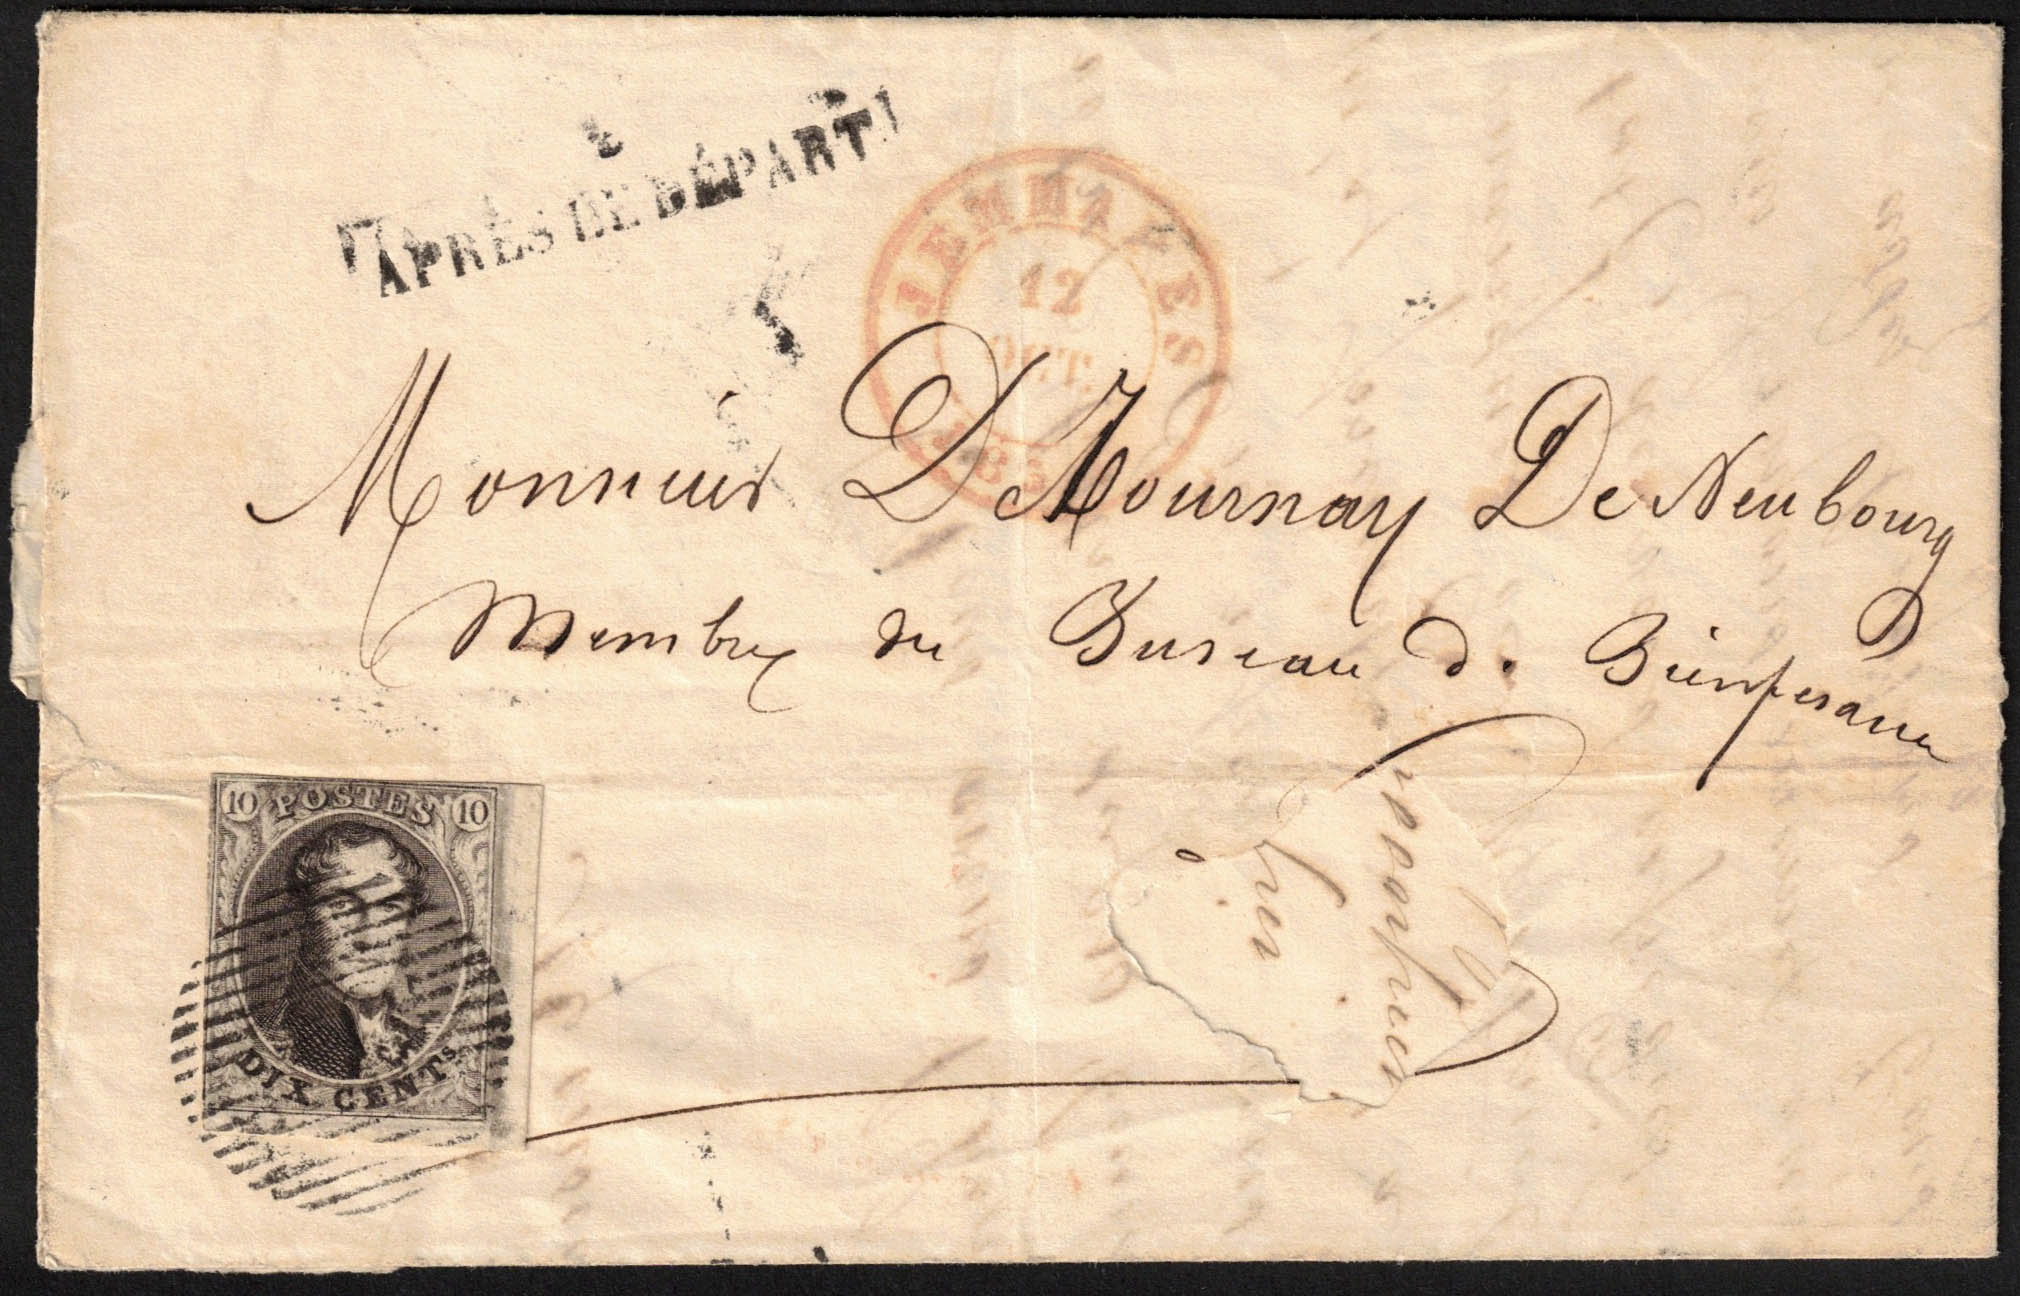 APRÈS LE DÉPART
JEMMAPES
12
OCT.
185
Monsieur De Tournay De Neubourg
Membre du Bureau de Bienfesance
10 POSTES 10
DIX CENTS